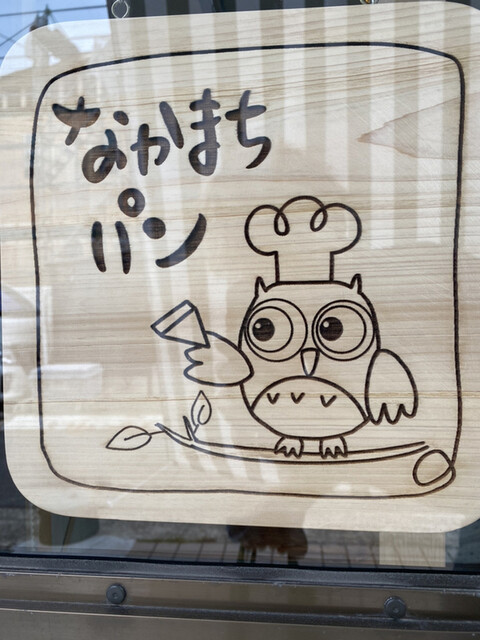 なかまち
パン